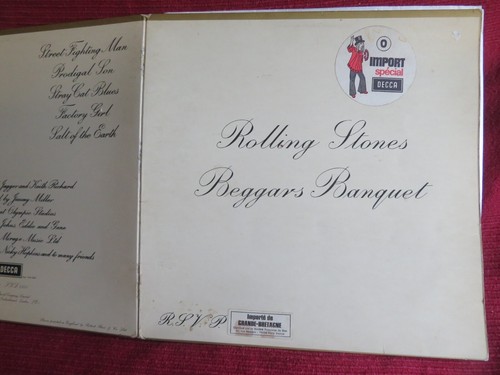 Street Fighting Man
Prodigal Son
Stray Cat Blues
Factory Girl
Salt of the Earth
Jagger and Keith Richard
by Jimmy Miller
at Olympic Studios
Johns, Eddie and Gene
Mirage Music Ltd
Nicky Hopkins and to many friends
DECCA
O
IMPORT
spécial
DECCA
Rolling Stones
Beggars Banquet
R.S.V.P.
Importé de
GRANDE-BRETAGNE